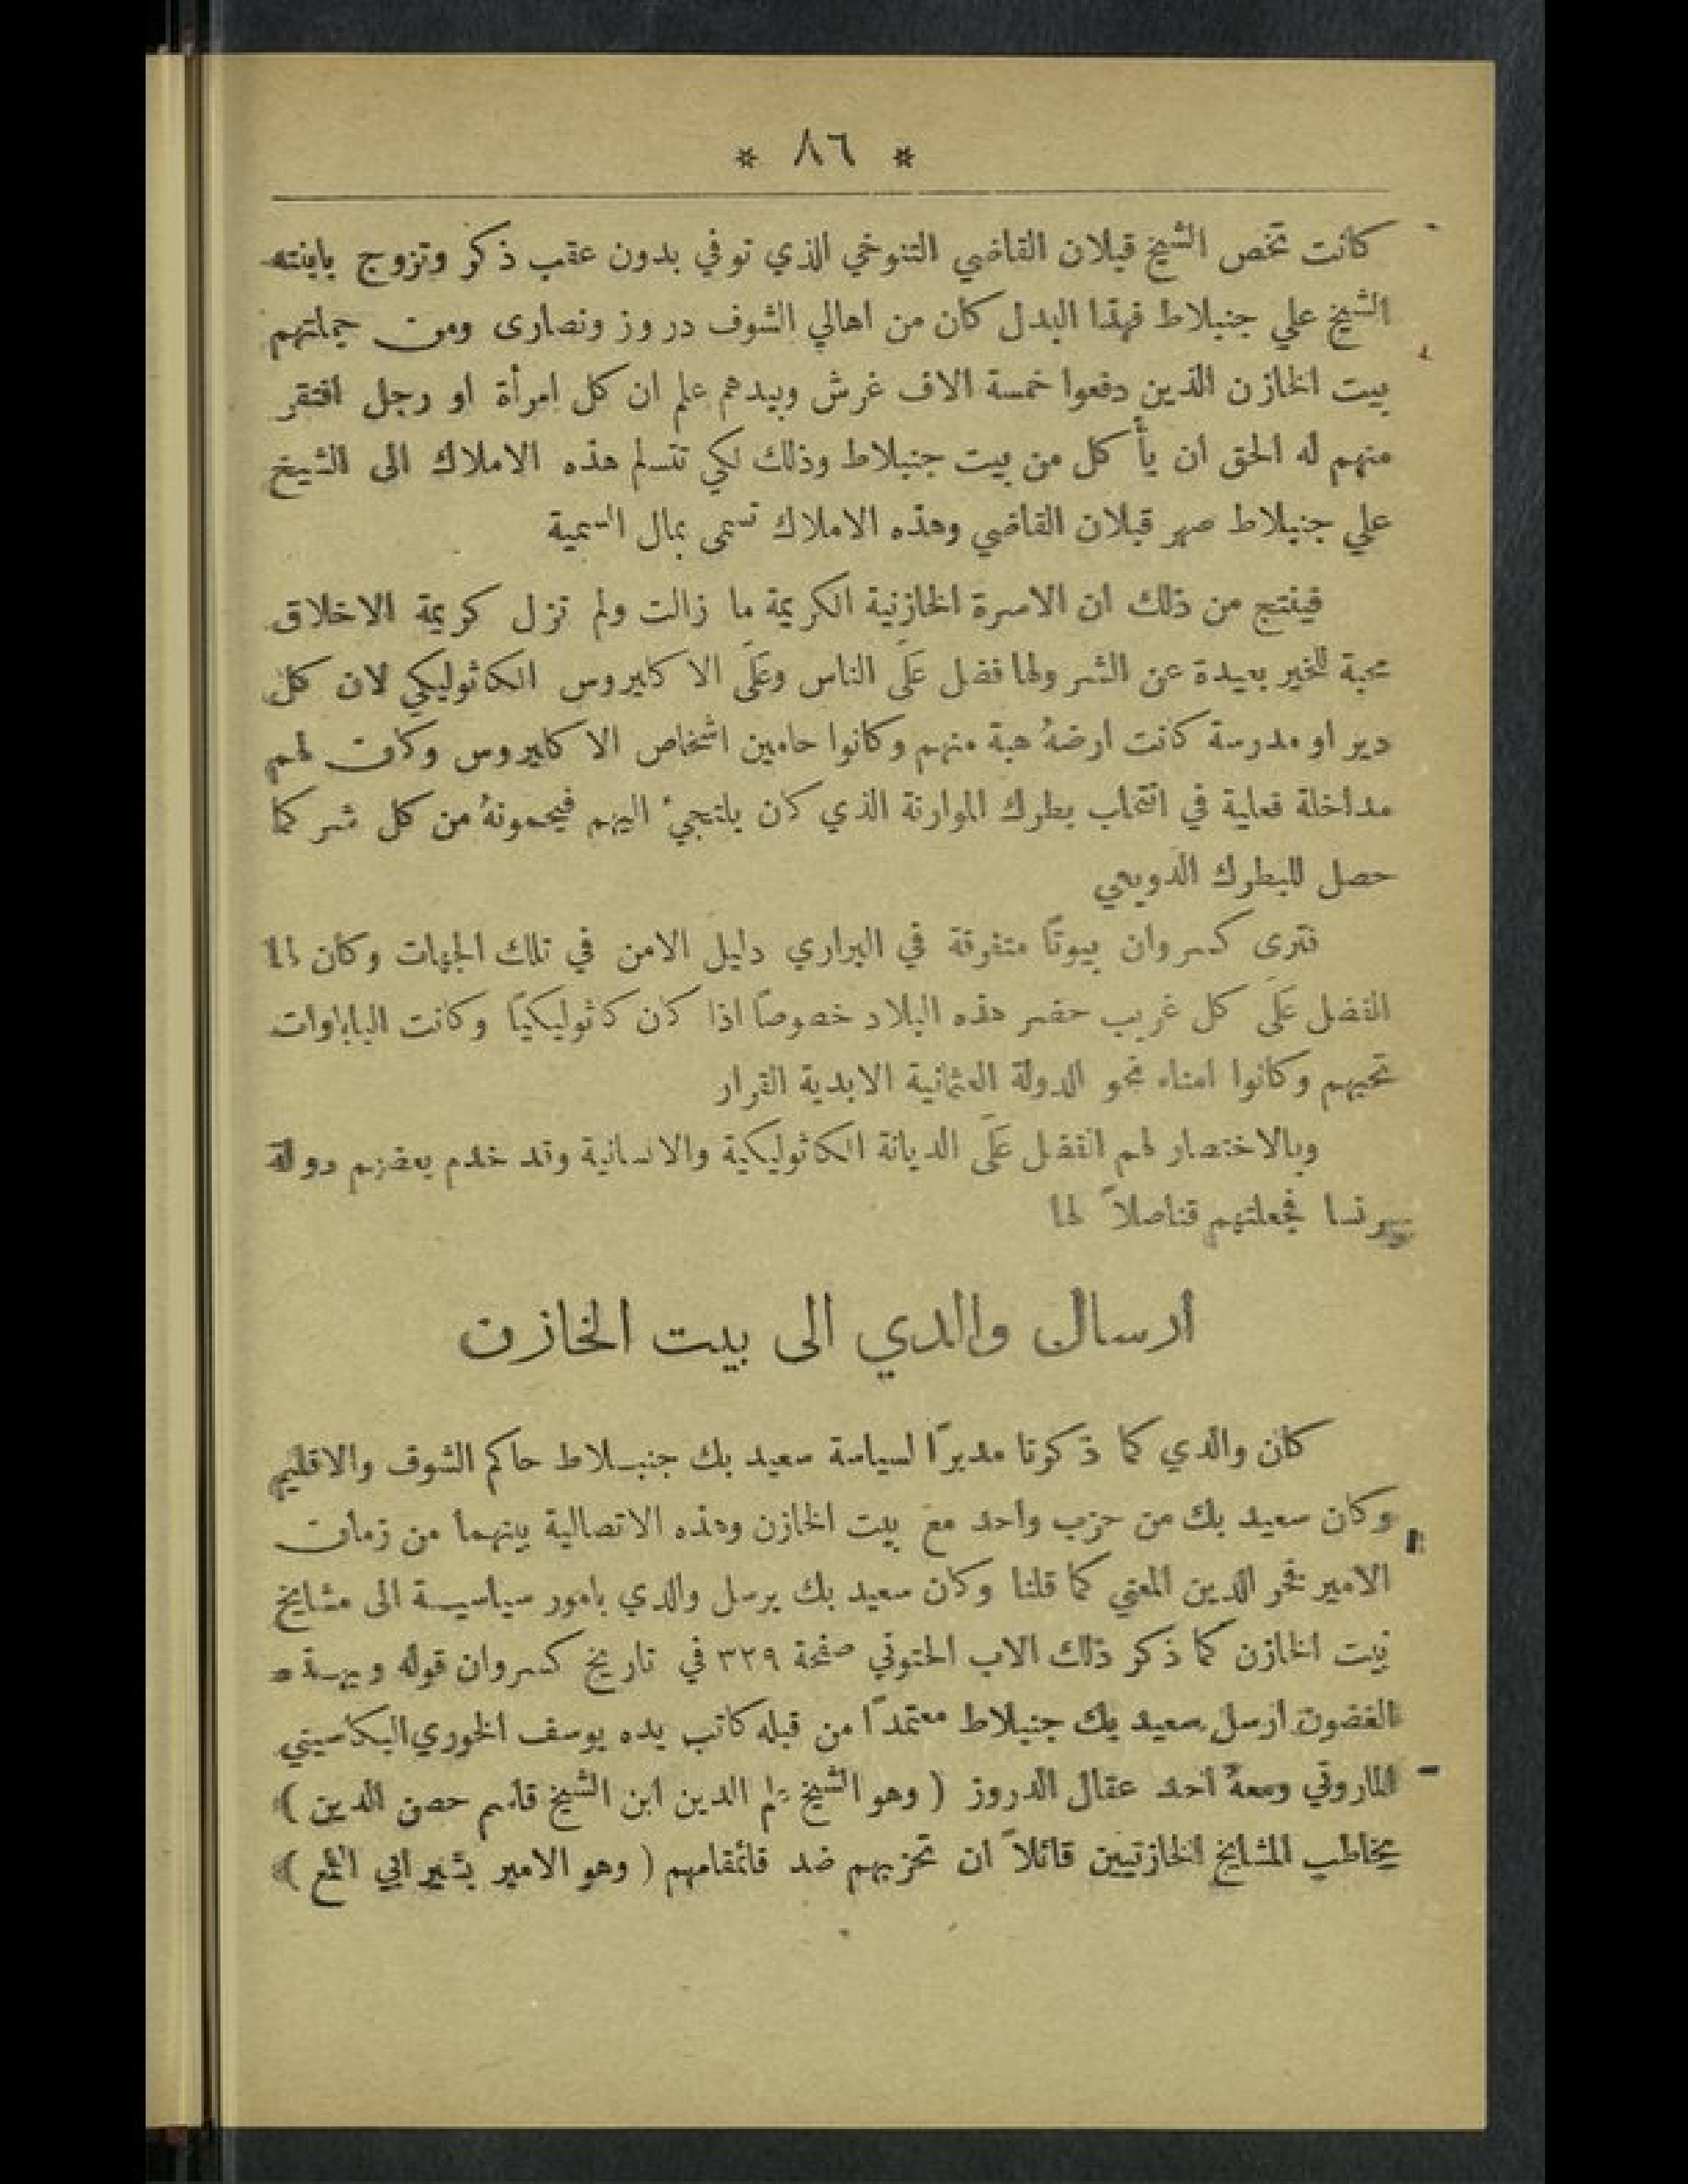 * ٨٦ *
كانت تخص الشيخ قبلان القاضي التنوخي الذي توفي بدون عقب ذكر وتزوج بابنته
الشيخ علي جنبلاط فهذا البدل كان من اهالي الشوف دروز ونصارى ومن جملتهم
بيت الخازن الذين دفعوا خمسة الاف غرش وبيدهم علم ان كل امرأة او رجل افتقر
منهم له الحق ان يأكل من بيت جنبلاط وذلك لكي تتسلم هذه الاملاك الى الشيخ
علي جنبلاط صهر قبلان القاضي وهذه الاملاك تسمى بمال السمية
فينتج من ذلك ان الاسرة الخازنية الكريمة ما زالت ولم تزل كريمة الاخلاق
محبة للخير بعيدة عن الشر ولها فضل عَلَى الناس وعَلَى الاكليروس الكاثوليكي لان كل
دير او مدرسة كانت ارضهُ هبة منهم وكانوا حامين اشخاص الاكليروس وكان لهم
مداخلة فعلية في انتخاب بطرك الموارنة الذي كان يلتجيء اليهم فيحمونهُ من كل شر كما
حصل للبطرك الدويهي
فترى كسروان بيوتًا متفرقة في البراري دليل الامن في تلك الجهات وكان لها
الفضل عَلَى كل غريب حضر هذه البلاد خصوصًا اذا كان كاثوليكيًا وكانت الباباوات
تحبهم وكانوا امناء نحو الدولة العثمانية الابدية القرار
وبالاختصار لهم الفضل عَلَى الديانة الكاثوليكية والانسانية وقد خدم بعضهم دولة
فرنسا فجعلتهم قناصلاً لها
ارسال والدي الى بيت الخازن
كان والدي كما ذكرنا مدبرًا لسياسة سعيد بك جنبلاط حاكم الشوف والاقليم
وكان سعيد بك من حزب واحد مع بيت الخازن وهذه الاتصالية بينهما من زمان
الامير فخر الدين المعني كما قلنا وكان سعيد بك يرسل والدي بامور سياسية الى مشايخ
بيت الخازن كما ذكر ذلك الاب الحتوني صفحة ٣٢٩ في تاريخ كسروان قوله وبهذه
الغضون ارسل سعيد بك جنبلاط معتمدًا من قبله كاتب يده يوسف الخوري البكاسيني
الماروني ومعهُ احد عقال الدروز ( وهو الشيخ علم الدين ابن الشيخ قاسم حصن الدين )
يخاطب المشايخ الخازنيين قائلاً ان تحزبهم ضد قائمقامهم ( وهو الامير بشير ابي اللمع )